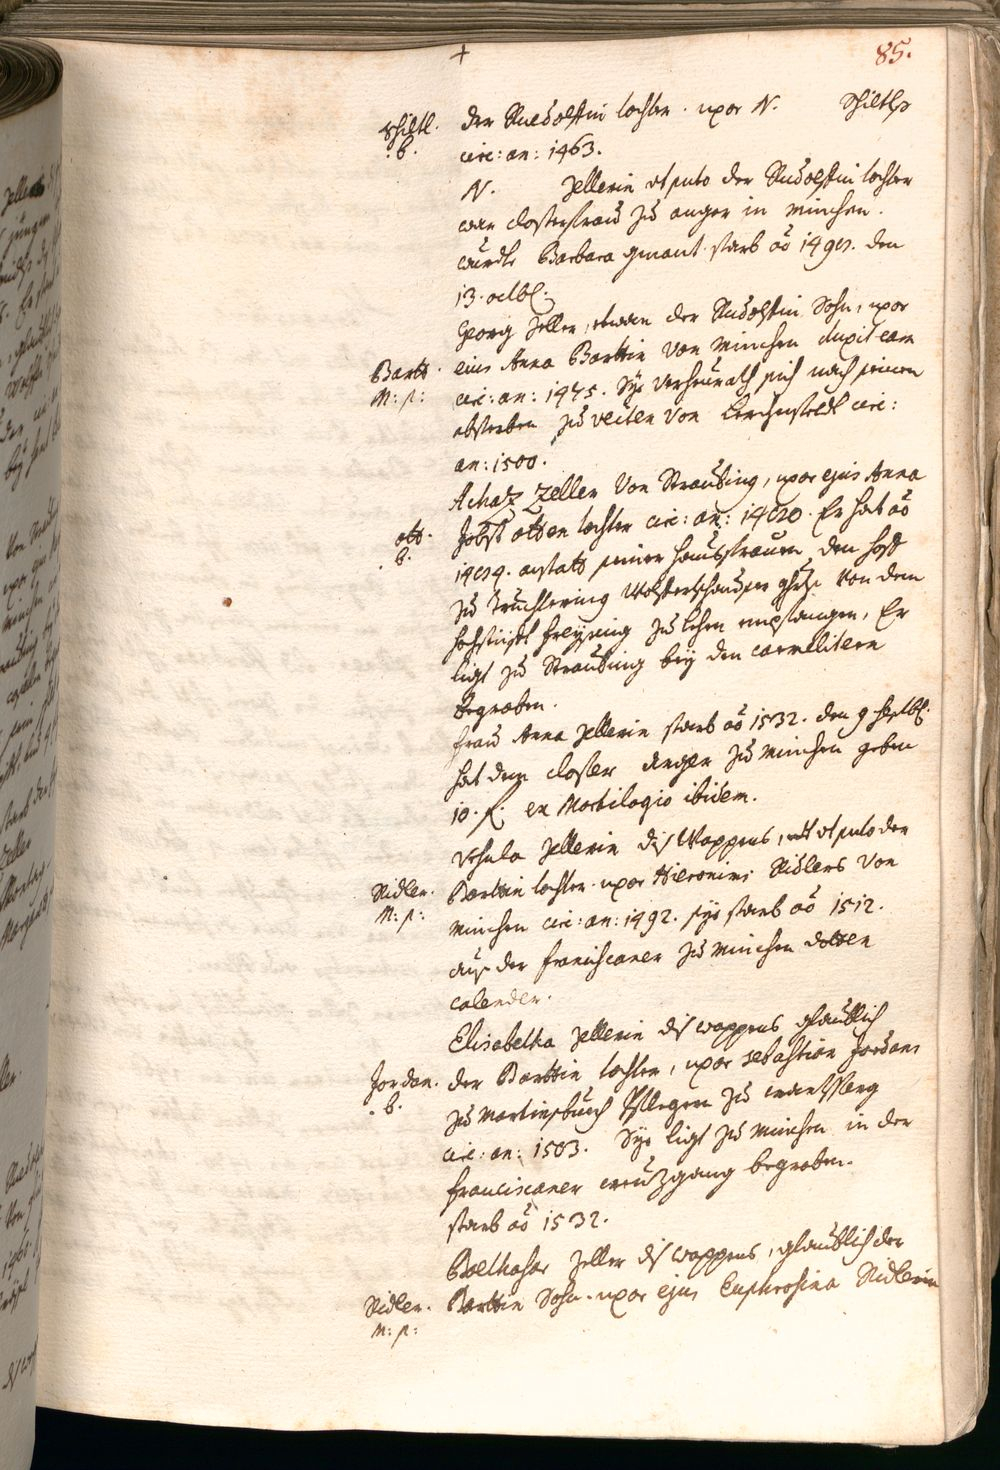 +
85.
Schiltl. der Rudolffin tochter. uxor N. Schiltls
.b. circ: an: 1463.
N. Zellerin ut puto der Rudolffin tochter
war Closterfrau zu anger in München.
wurdt Barbara gnant starb aõ 14 . den
13. octob:
Georg Zeller, etwan der Rudolffin Sohn, uxor
Bartt. eius Anna Barttin von München duxit eam
M: p: circ: an: 1475. Sye verheurath sich nach seinem
absterben zu Veiten von Lerchenfeldt circ:
an: 1500.
Achatz Zeller von Straubing, uxor ejus Anna
ott. Jobst otten tochter circ: an: 14 . Er hat aõ
.b. 14 4. anstatt seiner hausfrauen den hoff
zu Truchlering Wolfferschauser ghts von dem
hochstifft Freysing zu lehen empfangen, Er
ligt zu Straubing bey den carmelitern
begraben.
Frau Anna Zellerin starb aõ 1532. den 9 Septb:
hat dem closter Anger zu München geben
10. f. ex Mortilogio ibidem.
Ursula Zellerin diß Wappens, ut puto der
Ridler. Barttin tochter. uxor Hieronimi Ridlers von
M: p: München circ: an: 1492. sye starb aõ 1512.
aus der franciscaner zu München dotten
calender.
Elisabetha Zellerin diß wappens glaublich
Jordan. der Barttin tochter, uxor Sebastian Jordans
.b. zu Martinsbuech Pflegern zu
circ: an: 1503. Sye ligt zu München in der
franciscaner creutzgang begraben.
starb aõ 1532.
Balthasar Zeller diß wappens, glaublich der
Ridler. Barttin Sohn. uxor ejus Euphrosina Ridlerin
M: p: